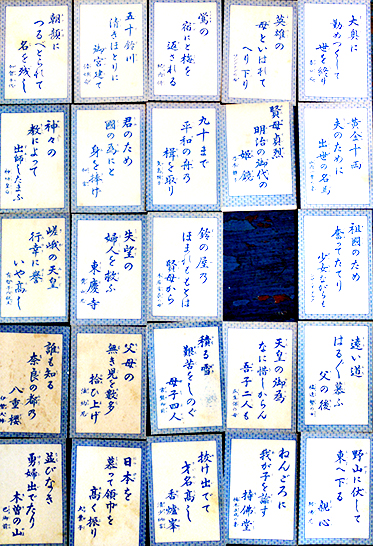 大奥に
勤めつくして
世を終り
英雄の
母といはれて
へり下り
鶯の
宿にと梅を
返される
五十鈴川
清きほとりに
御宮建て
朝顔に
つるべとられて
名を残し
加賀千代
黄金十両
夫のために
出世の名馬
賢母貞烈
明治の御代の
姫鏡
九十まで
平和の舟の
楫を取り
君のため
國の為にと
身を捧げ
神々の
教によって
出師したまふ
神功皇后
祖國のため
奮つてたてり
少女ながらも
鈴の屋の
ほまれももとは
賢母から
失望の
婦人を救ふ
東慶寺
嵯峨の天皇
行幸に誉
いや高し
遠い道
はるばる慕ふ
父の後
天皇の御為
なに惜しからん
吾子二人も
積る雪
艱苦をしのぐ
母子四人
父母の
無き児を数多
拾ひ上げ
誰も知る
奈良の都の
八重櫻
伊勢大輔
野山に伏して
東へ下る
親心
ねんごろに
我が子を諭す
持佛堂
抜け出でて
才名高し
香爐峯
日本を
慕って領巾を
高く振り
並びなき
勇婦出でたり
木曽の山
巴御前